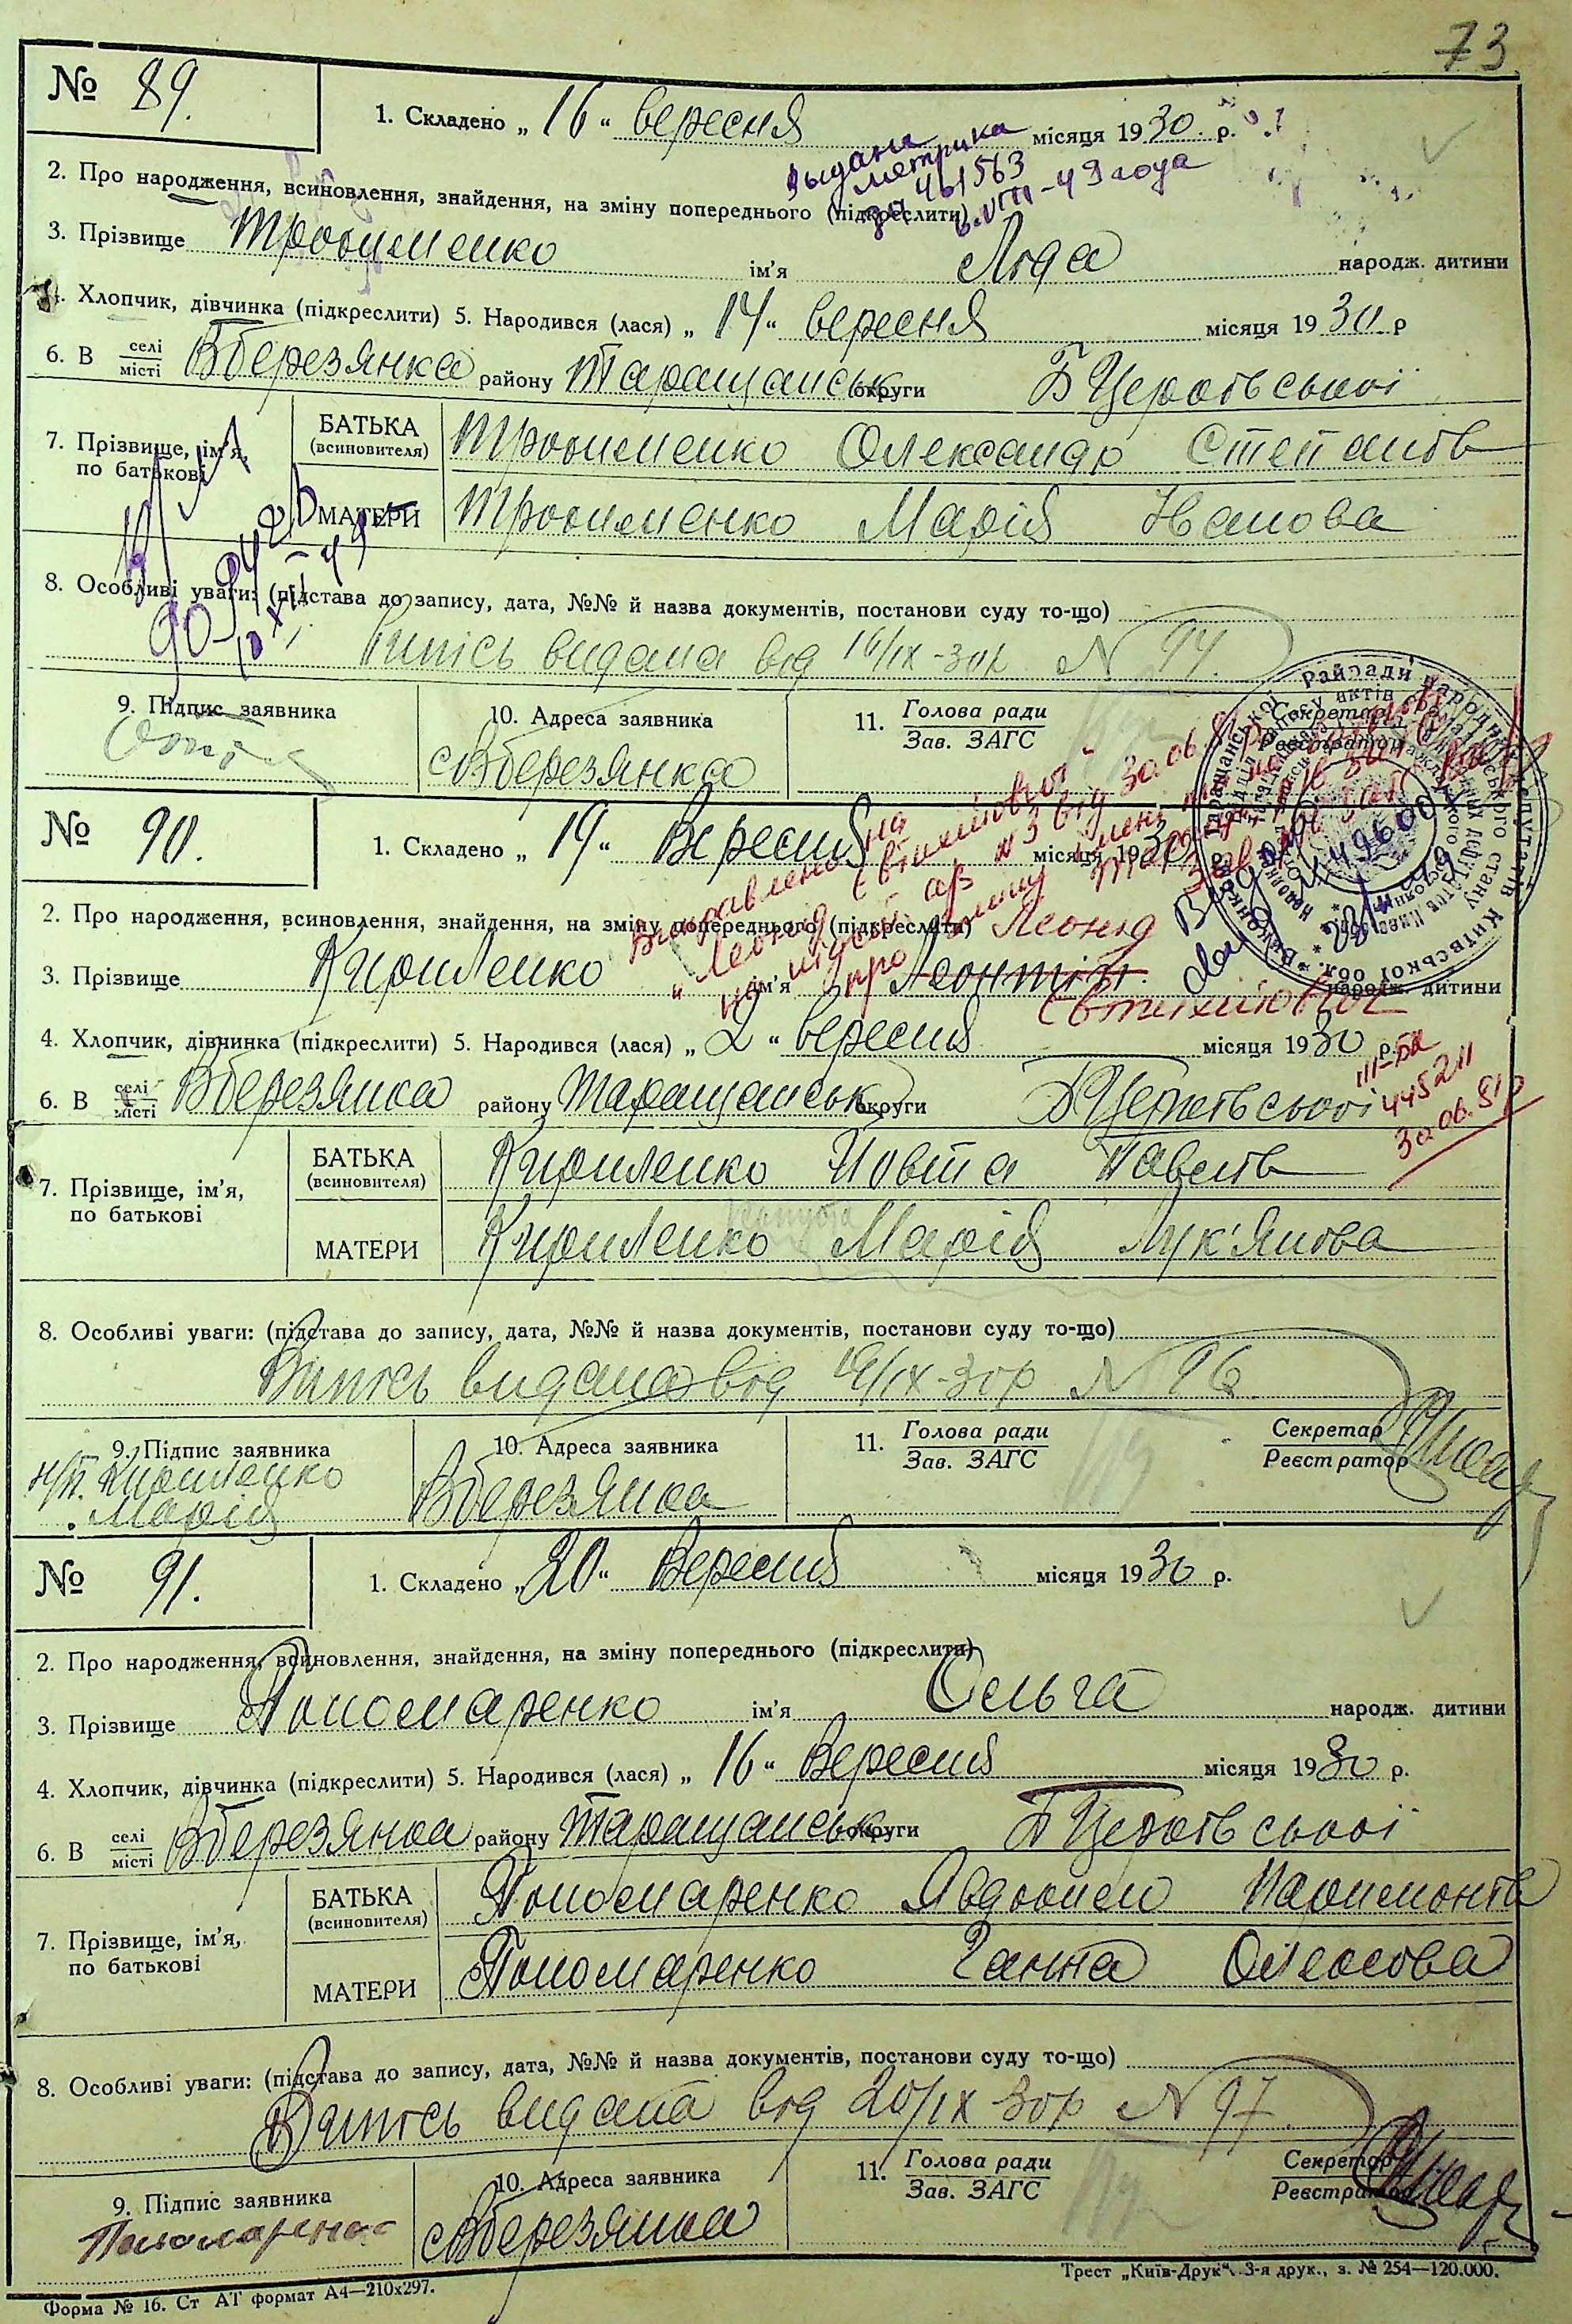 73
№ 89.
1. Складено „16“ вересня місяця 1930 р.
Выдана
метрика
461563
VIII-49 года
2. Про народження, всиновлення, знайдення, на зміну попереднього (підкреслити)
3. Прізвище Трохименко ім'я Люда народж. дитини
4. Хлопчик, дівчинка (підкреслити) 5. Народився (лася) „14“ вересня місяця 1930 р
6. В селі/місті Вберезянка району Таращанськ округи БЦерківської
7. Прізвище, ім'я, по батькові
БАТЬКА (всиновителя) Трохименко Олександр Степанів
МАТЕРИ Трохименко Марія Іванова
8. Особливі уваги: (підстава до запису, дата, №№ й назва документів, постанови суду то-що)
Випісь видана від 16/IX-30р N 94.
9. Підпис заявника
10. Адреса заявника
сВберезянка
11. Голова ради
Зав. ЗАГС
Секретар
Реєстратор
№ 90.
1. Складено „19“ Вересня місяця 1930 р.
Виправлено на
"Леонід Євтихійович"
від 30.06.81р
2. Про народження, всиновлення, знайдення, на зміну попереднього (підкреслити)
Леонід
3. Прізвище Кириленко ім'я Леонтій народж. дитини
Євтихійович
4. Хлопчик, дівчинка (підкреслити) 5. Народився (лася) „2“ вересня місяця 1930 р.
III-БК
445211
30.06.81р
6. В селі/місті Вберезянка району Таращанськ округи БЦерківської
7. Прізвище, ім'я, по батькові
БАТЬКА (всиновителя) Кириленко Йовтіа Павлів
МАТЕРИ Кириленко Марія Лук'янова
8. Особливі уваги: (підстава до запису, дата, №№ й назва документів, постанови суду то-що)
Випісь видана від 19/IX-30р N 96
9. Підпис заявника
н/п. Кириленко
Марія
10. Адреса заявника
Вберезянка
11. Голова ради
Зав. ЗАГС
Секретар
Реєстратор
№ 91.
1. Складено „20“ Вересня місяця 1930 р.
2. Про народження, всиновлення, знайдення, на зміну попереднього (підкреслити)
3. Прізвище Пономаренко ім'я Ольга народж. дитини
4. Хлопчик, дівчинка (підкреслити) 5. Народився (лася) „16“ Вересня місяця 1930 р.
6. В селі/місті Вберезянка району Таращанськ округи БЦерківської
7. Прізвище, ім'я, по батькові
БАТЬКА (всиновителя) Пономаренко Явдоким Паримонів
МАТЕРИ Пономаренко Ганна Олексова
8. Особливі уваги: (підстава до запису, дата, №№ й назва документів, постанови суду то-що)
Випісь видана від 20/IX-30р N 97.
9. Підпис заявника
Пономаренко
10. Адреса заявника
сВберезянка
11. Голова ради
Зав. ЗАГС
Секретар
Реєстратор
Форма № 16. Ст АТ формат А4—210х297.
Трест „Київ-Друк“. 3-я друк., з. № 254—120.000.